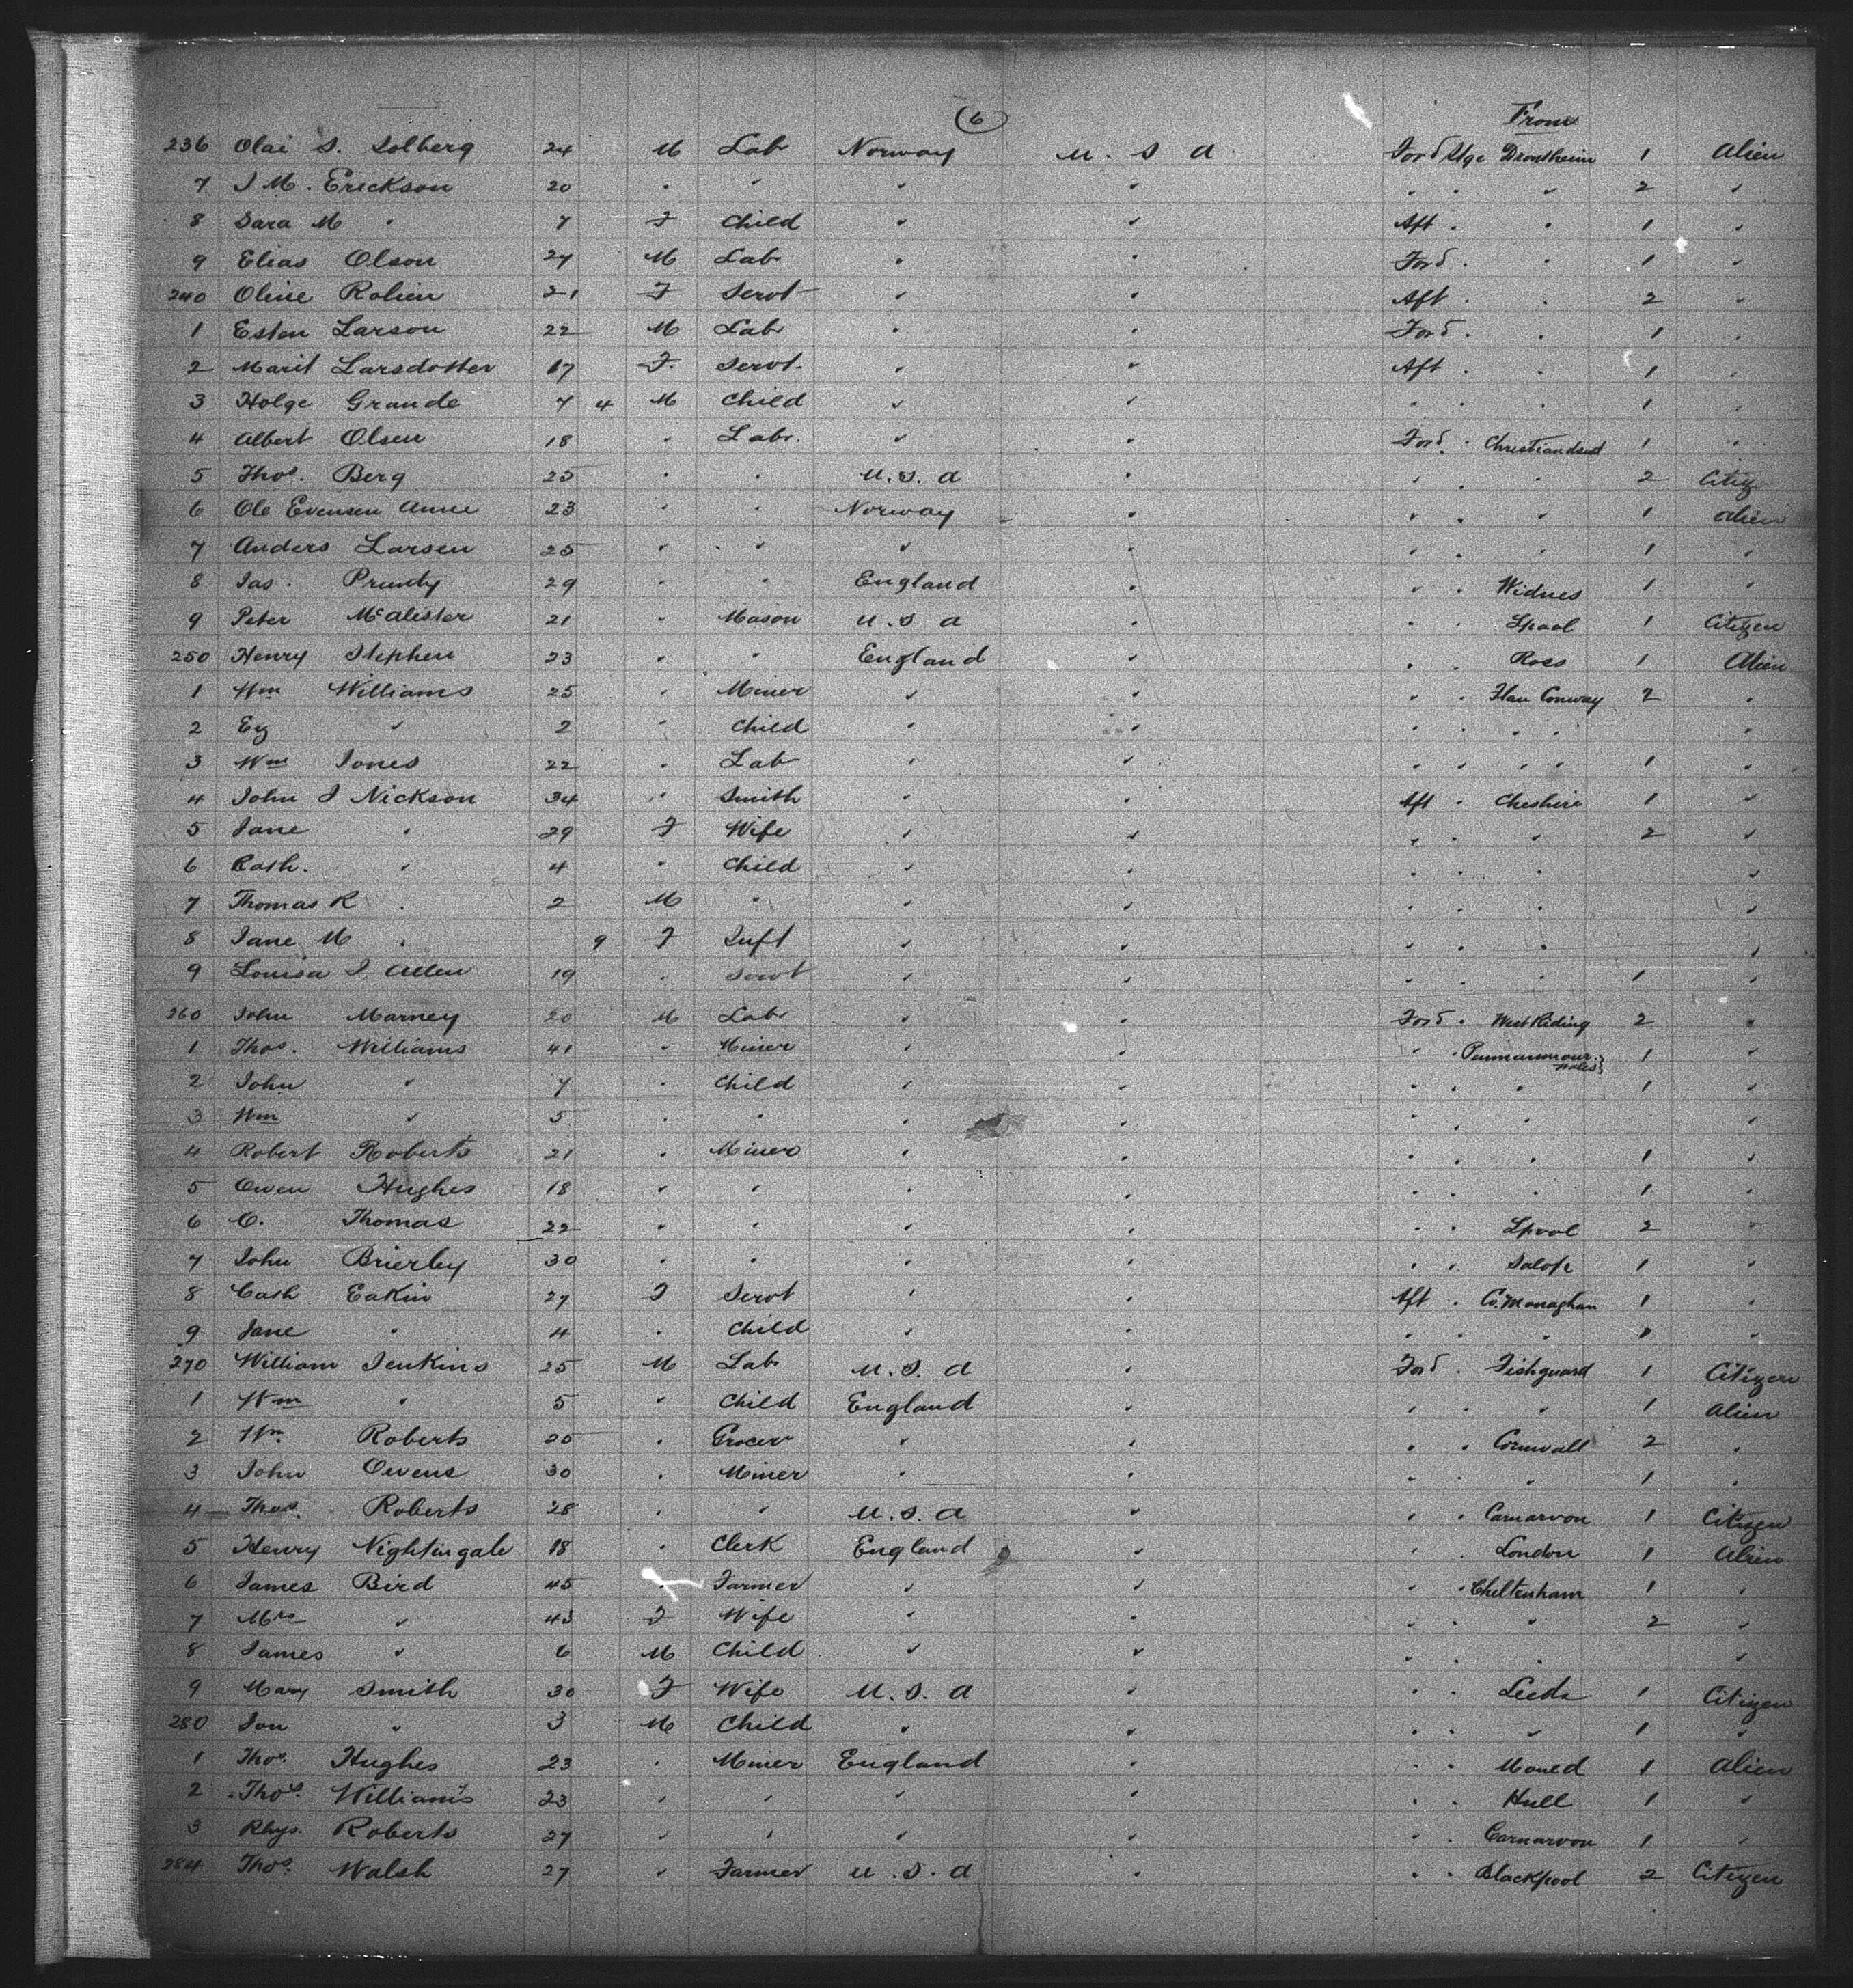 6
From
236 Olai S. Solberg 24 M Lab Norway U. S A Ford Stge Drontheim 1 Alien
7 I M. Erickson 20 " " " " " " " 2 "
8 Sara M " 7 F Child " " Aft " " 1 "
9 Elias Olson 27 M Lab " " Ford " " 1 "
240 Oline Rolien 21 F Servt " " Aft " " 2 "
1 Esten Larson 22 M Lab " " Ford " " 1 "
2 Marit Larsdotter 17 F Servt " " Aft " " 1 "
3 Holge Grande 7 4 M Child " " " " " 1 "
4 Albert Olsen 18 " Labr. " " Ford " Christiansand 1 "
5 Thos. Berg 25 " " U.S. A " " " " 2 Citiz
6 Ole Evensen Anne 23 " " Norway " " " " 1 Alien
7 Anders Larsen 25 " " " " " " " 1 "
8 Jas. Prunty 29 " " England " " " Widnes 1 "
9 Peter McAlister 21 " Mason U. S A " " " Lpool 1 Citizen
250 Henry Stephen 23 " " England " " " Ross 1 Alien
1 Wm Williams 25 " Miner " " " " Conway 2 "
2 " 2 " Child " " " " " "
3 Wm Jones 22 " Lab " " " " " " 1 "
4 John J Nickson 34 " Smith " " Aft " Cheshire 1 "
5 Jane " 29 F Wife " " " " " 2 "
6 Cath. " 4 " Child " " " " " "
7 Thomas R " 2 M " " " " " " "
8 Jane M " 9 F Inft " " " " " "
9 Louisa J Allen 19 " Servt " " " " " 1 "
260 John Marney 20 M Lab " " Ford " West Riding 2 "
1 Thos. Williams 41 " Miner " " " " Penmaenmour Wales 1 "
2 John " 7 " Child " " " " " 1 "
3 Wm " 5 " " " " " " " "
4 Robert Roberts 21 " Miner " " " " " 1 "
5 Owen Hughes 18 " " " " " " " 1 "
6 O. Thomas 22 " " " " " " Lpool 2 "
7 John Brierley 30 " " " " " " Salop 1 "
8 Cath Eakin 27 F Servt " " Aft " Co. Monaghan 1 "
9 Jane " 4 " Child " " " " " 1 "
270 William Jenkins 25 M Lab U.S. A " Ford " Fishguard 1 Citizen
1 Wm " 5 " Child England " " " " 1 Alien
2 Wm Roberts 25 " Grocer " " " " Cornwall 2 "
3 John Owens 30 " Miner " " " " " 1 "
4 Thos. Roberts 28 " " U.S. A " " " Carnarvon 1 Citizen
5 Henry Nightingale 18 " Clerk England " " " London 1 Alien
6 James Bird 45 " Farmer " " " " Cheltenham 1 "
7 Mrs " 43 F Wife " " " " " 2 "
8 James " 6 M Child " " " " " "
9 Mary Smith 30 F Wife U. S. A " " " Leeds 1 Citizen
280 Son " 3 M Child " " " " " 1 "
1 Thos. Hughes 23 " Miner England " " " 1 Alien
2 Thos. Williams 23 " " " " " " Hull 1 "
3 Rhys. Roberts 27 " " " " " " Carnarvon 1 "
284 Thos. Walsh 27 " Farmer U. S. A " " " Blackpool 2 Citizen